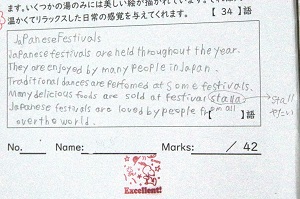 ます。いくつかの湯のみには美しい絵が描かれています。
温かくてリラックスした日常の感覚を与えてくれます。 【 34 】語
Japanese Festivals
Japanese festivals are held throughout the year.
They are enjoyed by many people in Japan.
Traditional dances are perfomed at some festivals.
Many delicious foods are sold at festival stalls. stall
Japanese festivals are loved by people from all 【 】語 やたい
over the world.
No. Name: Marks: / 42
Excellent!